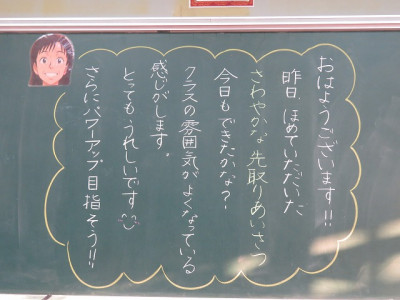 おはようございます!!
昨日、ほめていただいた
さわやかな先取りあいさつ
今日もできたかな?
クラスの雰囲気がよくなっている
感じがします。
とってもうれしいです
さらにパワーアップ目指そう!!